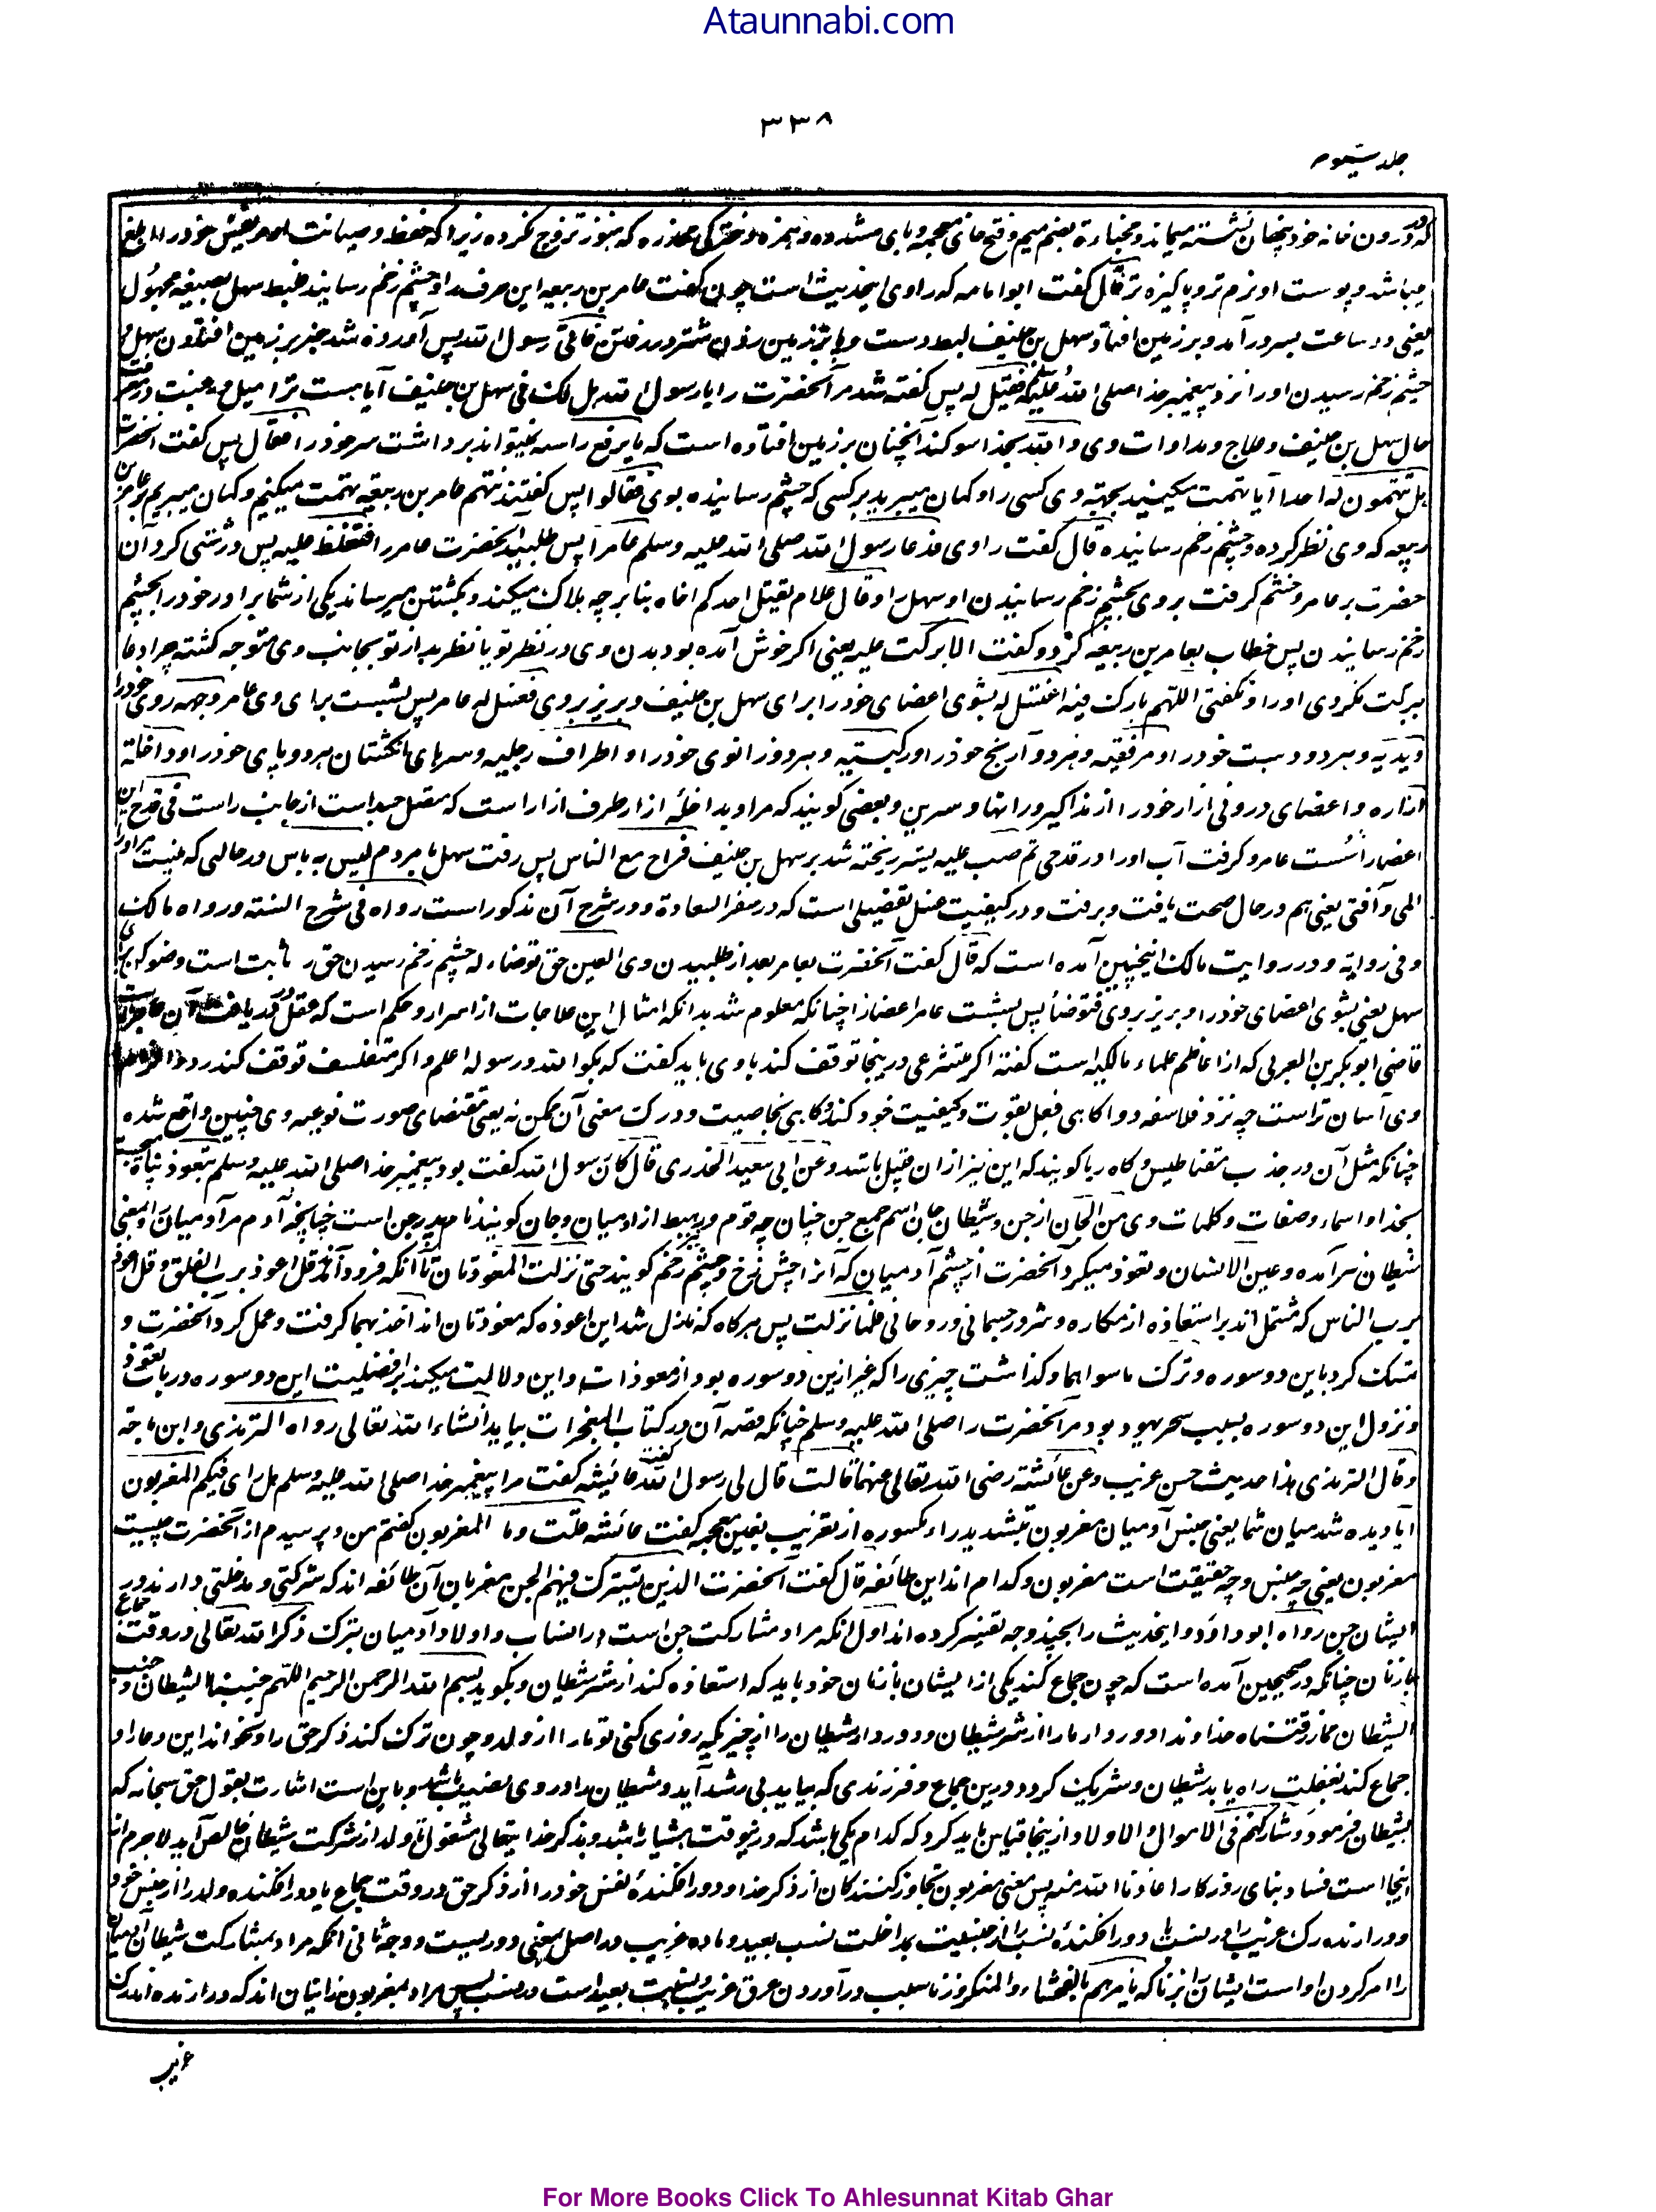 Ataunnabi.com
۳۳۸
جلد سیوم
که در درون خانه خود پنهان نشسته میماند و مخباءة بضم میم و فتح خای معجمه و بای مشدده و همزه دخترکی مخدره که هنوز تزوج نکرده زیرا که حفظ و صیانت خود را ابلغ
میباشد و پوست او نرم تر و پاکیزه تر قال گفت ابوامامه که راوی اینحدیث است چون گفت عامر بن ربیعه این حرف را و چشم زخم رسانید فلبط سهل بصیغه مجهول
یعنی در ساعت بسر در آمد و بر زمین افتاد سهل بن حنیف لبط دست و پای بر زمین زدن شتر در رفتن فاتی رسول الله پس آورده شد خبر بر زمین افتادن سهل و
چشم زخم رسیدن او را نزد پیغمبر خدا صلی الله علیه فقیل له پس گفته شد مر آنحضرت را یا رسول الله هل لک فی سهل بن حنیف آیا هست ترا میل و رغبت در
حال سهل بن حنیف و علاج و مداوات وی و الله بخدا سوگند آنچنان بر زمین افتاده است که ما یرفع راسه نمیتواند برداشت سر خود را فقال پس گفت آنحضرت
هل تتهمون له احدا آیا تهمت میکنید بجهة وی کسی را و گمان میبرید بر کسی که چشم رسانیده بوی فقالوا پس گفتند نتهم عامر بن ربیعه تهمت میکنیم و گمان میبریم بر عامر بن
ربیعه که وی نظر کرده و چشم زخم رسانیده قال گفت راوی فدعا رسول الله صلی الله علیه وسلم عامرا پس طلبید آنحضرت عامر را فتغلظ علیه پس درشتی کرد آن
حضرت بر عامر و خشم گرفت بر وی بچشم زخم رسانیدن او سهل را و قال علام یقتل احدکم اخاه بنا بر چه هلاک میکند و بکشتن میرساند یکی از شما برادر خود را بچشم
زخم رسانیدن پس خطاب بعامر بن ربیعه کرد و گفت الا برکت علیه یعنی اگر خوش آمده بود بدن وی در نظر تو یا نظر بد از تو بجانب وی متوجه گشته چرا دعا
ببرکت نکردی او را و نگفتی اللهم بارک فیه اغتسل له بشوی اعضای خود را برای سهل بن حنیف و بریز بر وی فغسل له عامر پس بشست برای وی عامر وجهه روی خود را
ویدیه و هر دو دست خود را و مرفقیه و هر دو آرنج خود را و رکبتیه و هر دو زانوی خود را و اطراف رجلیه و سرهای انگشتان هر دو پای خود را و داخلة
ازاره و اعضای درونی ازار خود را از مذاکیر و رانها و سرین و بعضی گویند که مراد بداخله ازار طرف ازار است که متصل جسد است از جانب راست فی قدح این
اعضا را شست عامر و گرفت آب او را در قدحی ثم صب علیه پستر ریخته شد بر سهل بن حنیف فراح مع الناس پس رفت سهل با مردم لیس به باس در حالی که نیست مر او را
المی و آفتی یعنی هم در حال صحت یافت و برفت و در کیفیت غسل تفصیلی است که در سفر السعادة و در شرح آن مذکور است رواه فی شرح السنة و رواه مالک
و فی روایة و در روایت مالک اینچنین آمده است که قال گفت آنحضرت بعامر بعد از طلبیدن وی العین حق توضاء له چشم زخم رسیدن حق و ثابت است وضو کن برای
سهل یعنی بشوی اعضای خود را و بریز بر وی فتوضا پس بشست عامر اعضا را چنانکه معلوم شد بدانکه امثال این علاجات از اسرار و حکم است که عقل در دریافت آن عاجز است
قاضی ابوبکر بن العربی که از اعاظم علماء مالکیه است گفته اگر متشرعی درینجا توقف کند با وی باید گفت که بگو الله و رسوله اعلم و اگر متفلسف توقف کند رد
وی آسان تر است چه نزد فلاسفه دوا گاهی فعل بقوت و کیفیت خود کند و گاهی بخاصیت و درک معنی آن ممکن نه یعنی مقتضای صورت نوعیه وی چنین واقع شده
چنانکه مثل آن در جذب مقناطیس و کاه ربا گویند که این نیز از ان قبیل باشد وعن ابی سعید الخدری قال کان رسول الله گفت بود پیغمبر خدا صلی الله علیه وسلم یتعوذ پناه میجست
بخدا و اسماء و صفات و کلمات وی من الجان از جن و شیطان جان اسم جمع جن چنان چه قوم و رهط از آدمیان و جان گویند نام پدر جن است چنانچه آدم مر آدمیان را و معنی
شیطان نیز آمده وعین الانسان و تعوذ میکرد آنحضرت از چشم آدمیان که آنرا چشم زخ و چشم زخم گویند حتی نزلت المعوذتان تا آنکه فرود آمد قل اعوذ برب الفلق و قل اعوذ
برب الناس که مشتمل اند بر استعاذه از مکاره و شرور جسمانی و روحانی فلما نزلت پس هرگاه که نازل شد این اعوذه که معوذتان اند اخذ بهما گرفت و عمل کرد آنحضرت و
تمسک کرد باین دو سوره وترک ما سواهما و گذاشت چیزی را که غیر ازین دو سوره بود از معوذات و این دلالت میکند بر افضلیت این دو سوره در باب تعوذ
و نزول این دو سوره بسبب سحر یهود بود مر آنحضرت را صلی الله علیه وسلم چنانکه قصه آن در کتاب المعجزات بیاید انشاءالله تعالی رواه الترمذی و ابن ماجة
وقال الترمذی هذا حدیث حسن غریب وعن عائشة رضی الله تعالی عنها قالت قال لی رسول الله گفت عائشه گفت مرا پیغمبر خدا صلی الله علیه وسلم هل رای فیکم المغربون
آیا دیده شد میان شما یعنی جنس آدمیان مغربون بتشدید راء مکسوره از تغریب بغین معجمه گفت عائشه قلت و ما المغربون گفتم من و پرسیدم از آنحضرت چیست
مغربون یعنی چه جنس و چه حقیقت است مغربون و کدام اند این طائفه قال گفت آنحضرت الذین یشترک فیهم الجن مغربان آن طائفه اند که شرکتی و مدخلتی دارند در
ایشان جن رواه ابو داؤد و اینحدیث را بچند وجه تفسیر کرده اند اول آنکه مراد مشارکت جن است در انساب و اولاد آدمیان بترک ذکر الله تعالی در وقت جماع
با زنان چنانکه در صحیحین آمده است که چون جماع کند یکی از ایشان با زنان خود باید که استعاذه کند از شر شیطان و بگوید بسم الله الرحمن الرحیم اللهم جنبنا الشیطان و جنب
الشیطان ما رزقتناه خداوندا دور دار ما را از شر شیطان و دور دار شیطان را از چیزیکه روزی کنی تو ما را از ولد و چون ترک کند ذکر حق را و نخواند این دعا را و
جماع کند بغفلت راه یابد شیطان و شریک گردد درین جماع و فرزندی که بیاید بی رشد آید و شیطان را در وی نصیب باشد و باین است اشارت بقول حق سبحانه که
بشیطان فرمود وشارکهم فی الاموال والاولاد و ازینجا قیاس باید کرد که کدام یکی باشد که درینوقت هشیار باشد و بذکر خدایتعالی مشغول تا ولد از شرکت شیطان خالص آید لا جرم از
اینجا است فساد بنای روزگار اعاذنا الله منه پس معنی مغربون تجاوز کنندگان از ذکر خدا و دور افکننده نفس خود را از ذکر حق در وقت جماع یا دور افکنده ولد را از جنس خود
و در آرنده رک غریب را در نسب یا دور افکننده نسب را از جنسیت بمداخلت نسب بعید و ماده غریب در اصل معنی دوریست و وجه ثانی آنکه مراد بمشارکت شیطان آدمیان
را امر کردن او است ایشان را بزنا که یامرهم بالفحشاء والمنکر و زنا سبب در آوردن عرق غریب و نسب بعید است در نسب پس مراد بمغربون زانیان اند که در آرنده اند رک
غریب
For More Books Click To Ahlesunnat Kitab Ghar